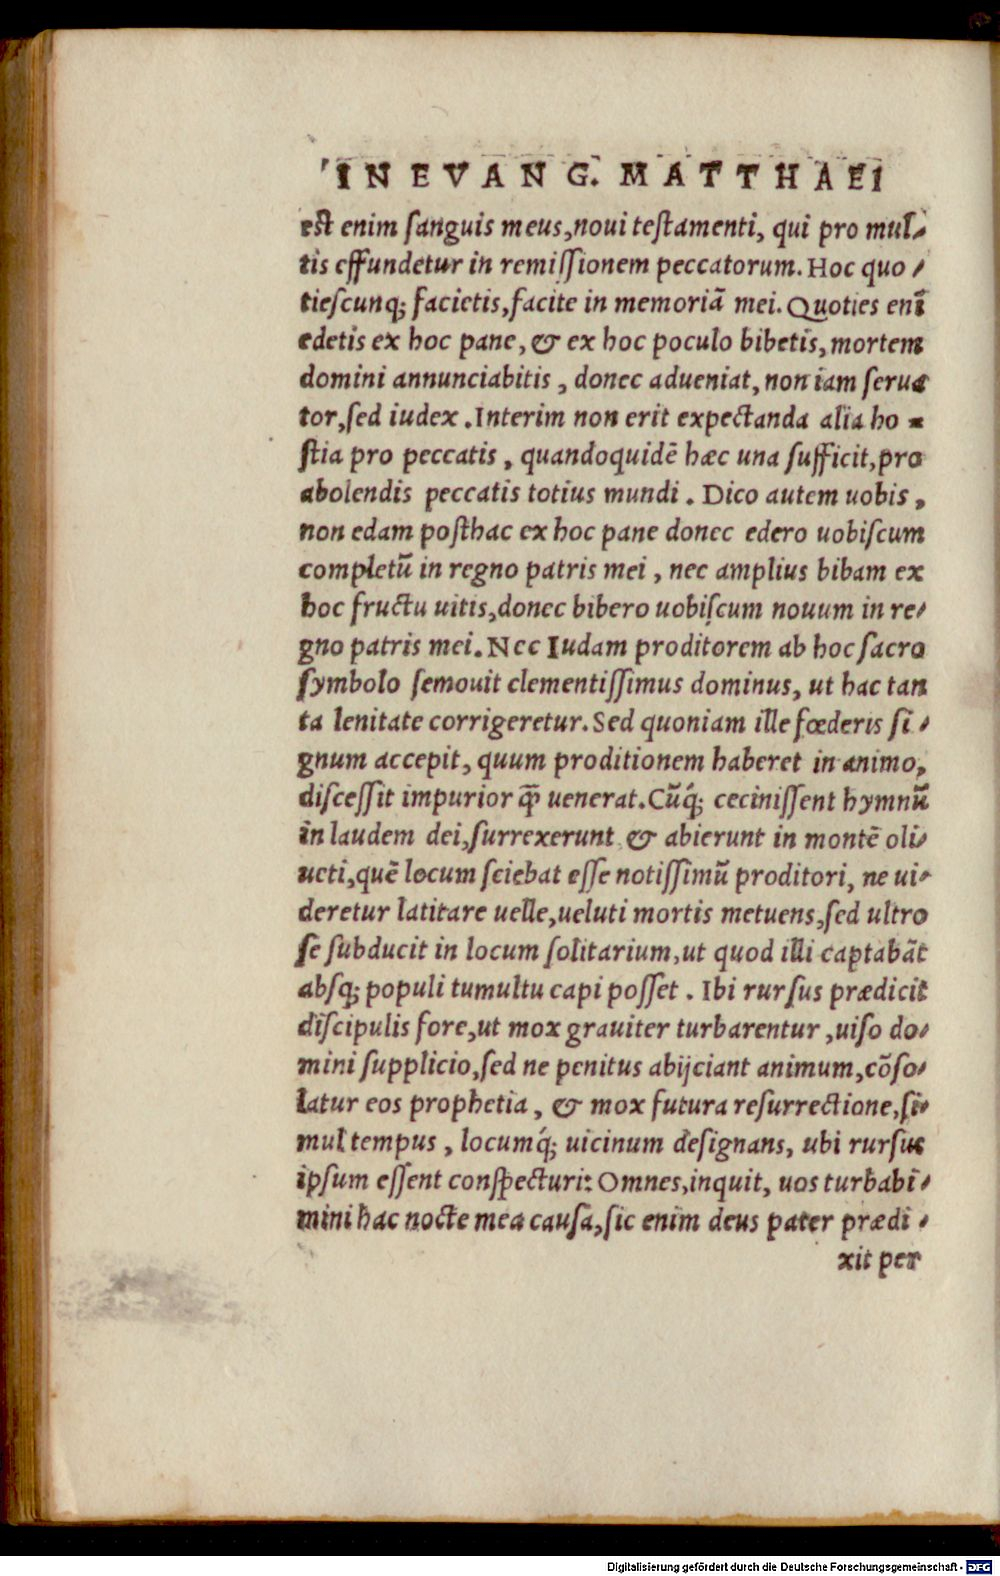 IN EVANG. MATTHAEI
est enim ſanguis meus,noui teſtamenti, qui pro mul⸗
tis effundetur in remiſſionem peccatorum. Hoc quo⸗
tieſcunq; facietis,facite in memoriā mei. Quoties enī
edetis ex hoc pane, & ex hoc poculo bibetis,mortem
domini annunciabitis, donec adueniat,non iam ſerua
tor,ſed iudex. Interim non erit expectanda alia ho⸗
ſtia pro peccatis, quandoquidē hæc una ſufficit,pro
abolendis peccatis totius mundi. Dico autem uobis,
non edam poſthac ex hoc pane donec edero uobiſcum
completū in regno patris mei, nec amplius bibam ex
hoc fructu uitis,donec bibero uobiſcum nouum in re⸗
gno patris mei. Nec Iudam proditorem ab hoc ſacro
ſymbolo ſemouit clementiſſimus dominus, ut hac tan
ta lenitate corrigeretur. Sed quoniam ille fœderis ſi⸗
gnum accepit, quum proditionem haberet in animo,
diſceſſit impurior q̄ȝ uenerat. Cūq́; ceciniſſent hymnū
in laudem dei,ſurrexerunt & abierunt in montē oli⸗
ueti,quē locum ſciebat eſſe notiſſimū proditori, ne ui⸗
deretur latitare uelle,ueluti mortis metuens,ſed ultro
ſe ſubducit in locum ſolitarium,ut quod illi captabāt
abſq; populi tumultu capi poſſet. Ibi rurſus prædicit
diſcipulis fore,ut mox grauiter turbarentur,uiſo do⸗
mini ſupplicio,ſed ne penitus abijciant animum,cōſo⸗
latur eos prophetia, & mox futura reſurrectione,ſi⸗
mul tempus, locumq́; uicinum deſignans, ubi rurſus
ipſum eſſent conſpecturi: Omnes,inquit, uos turbabi⸗
mini hac nocte mea cauſa,ſic enim deus pater prædi⸗
xit per
Digitalisierung gefördert durch die Deutsche Forschungsgemeinschaft - DFG